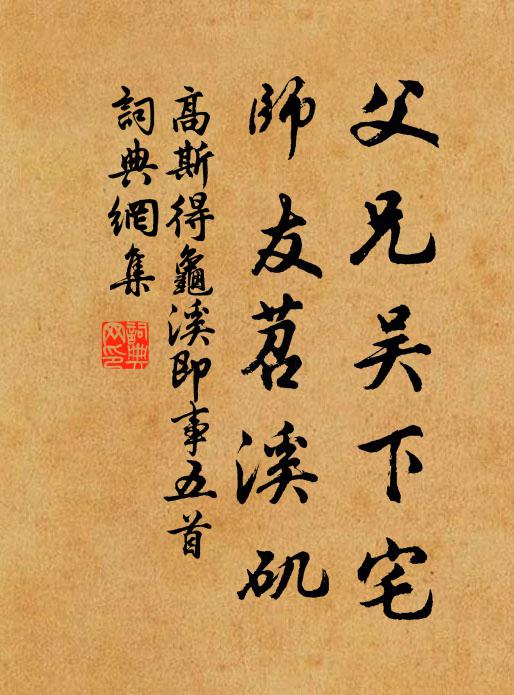 父兄吴下宅
師友苕溪矶
高斯得龜溪即事五首
詞典網集
詞典
网印